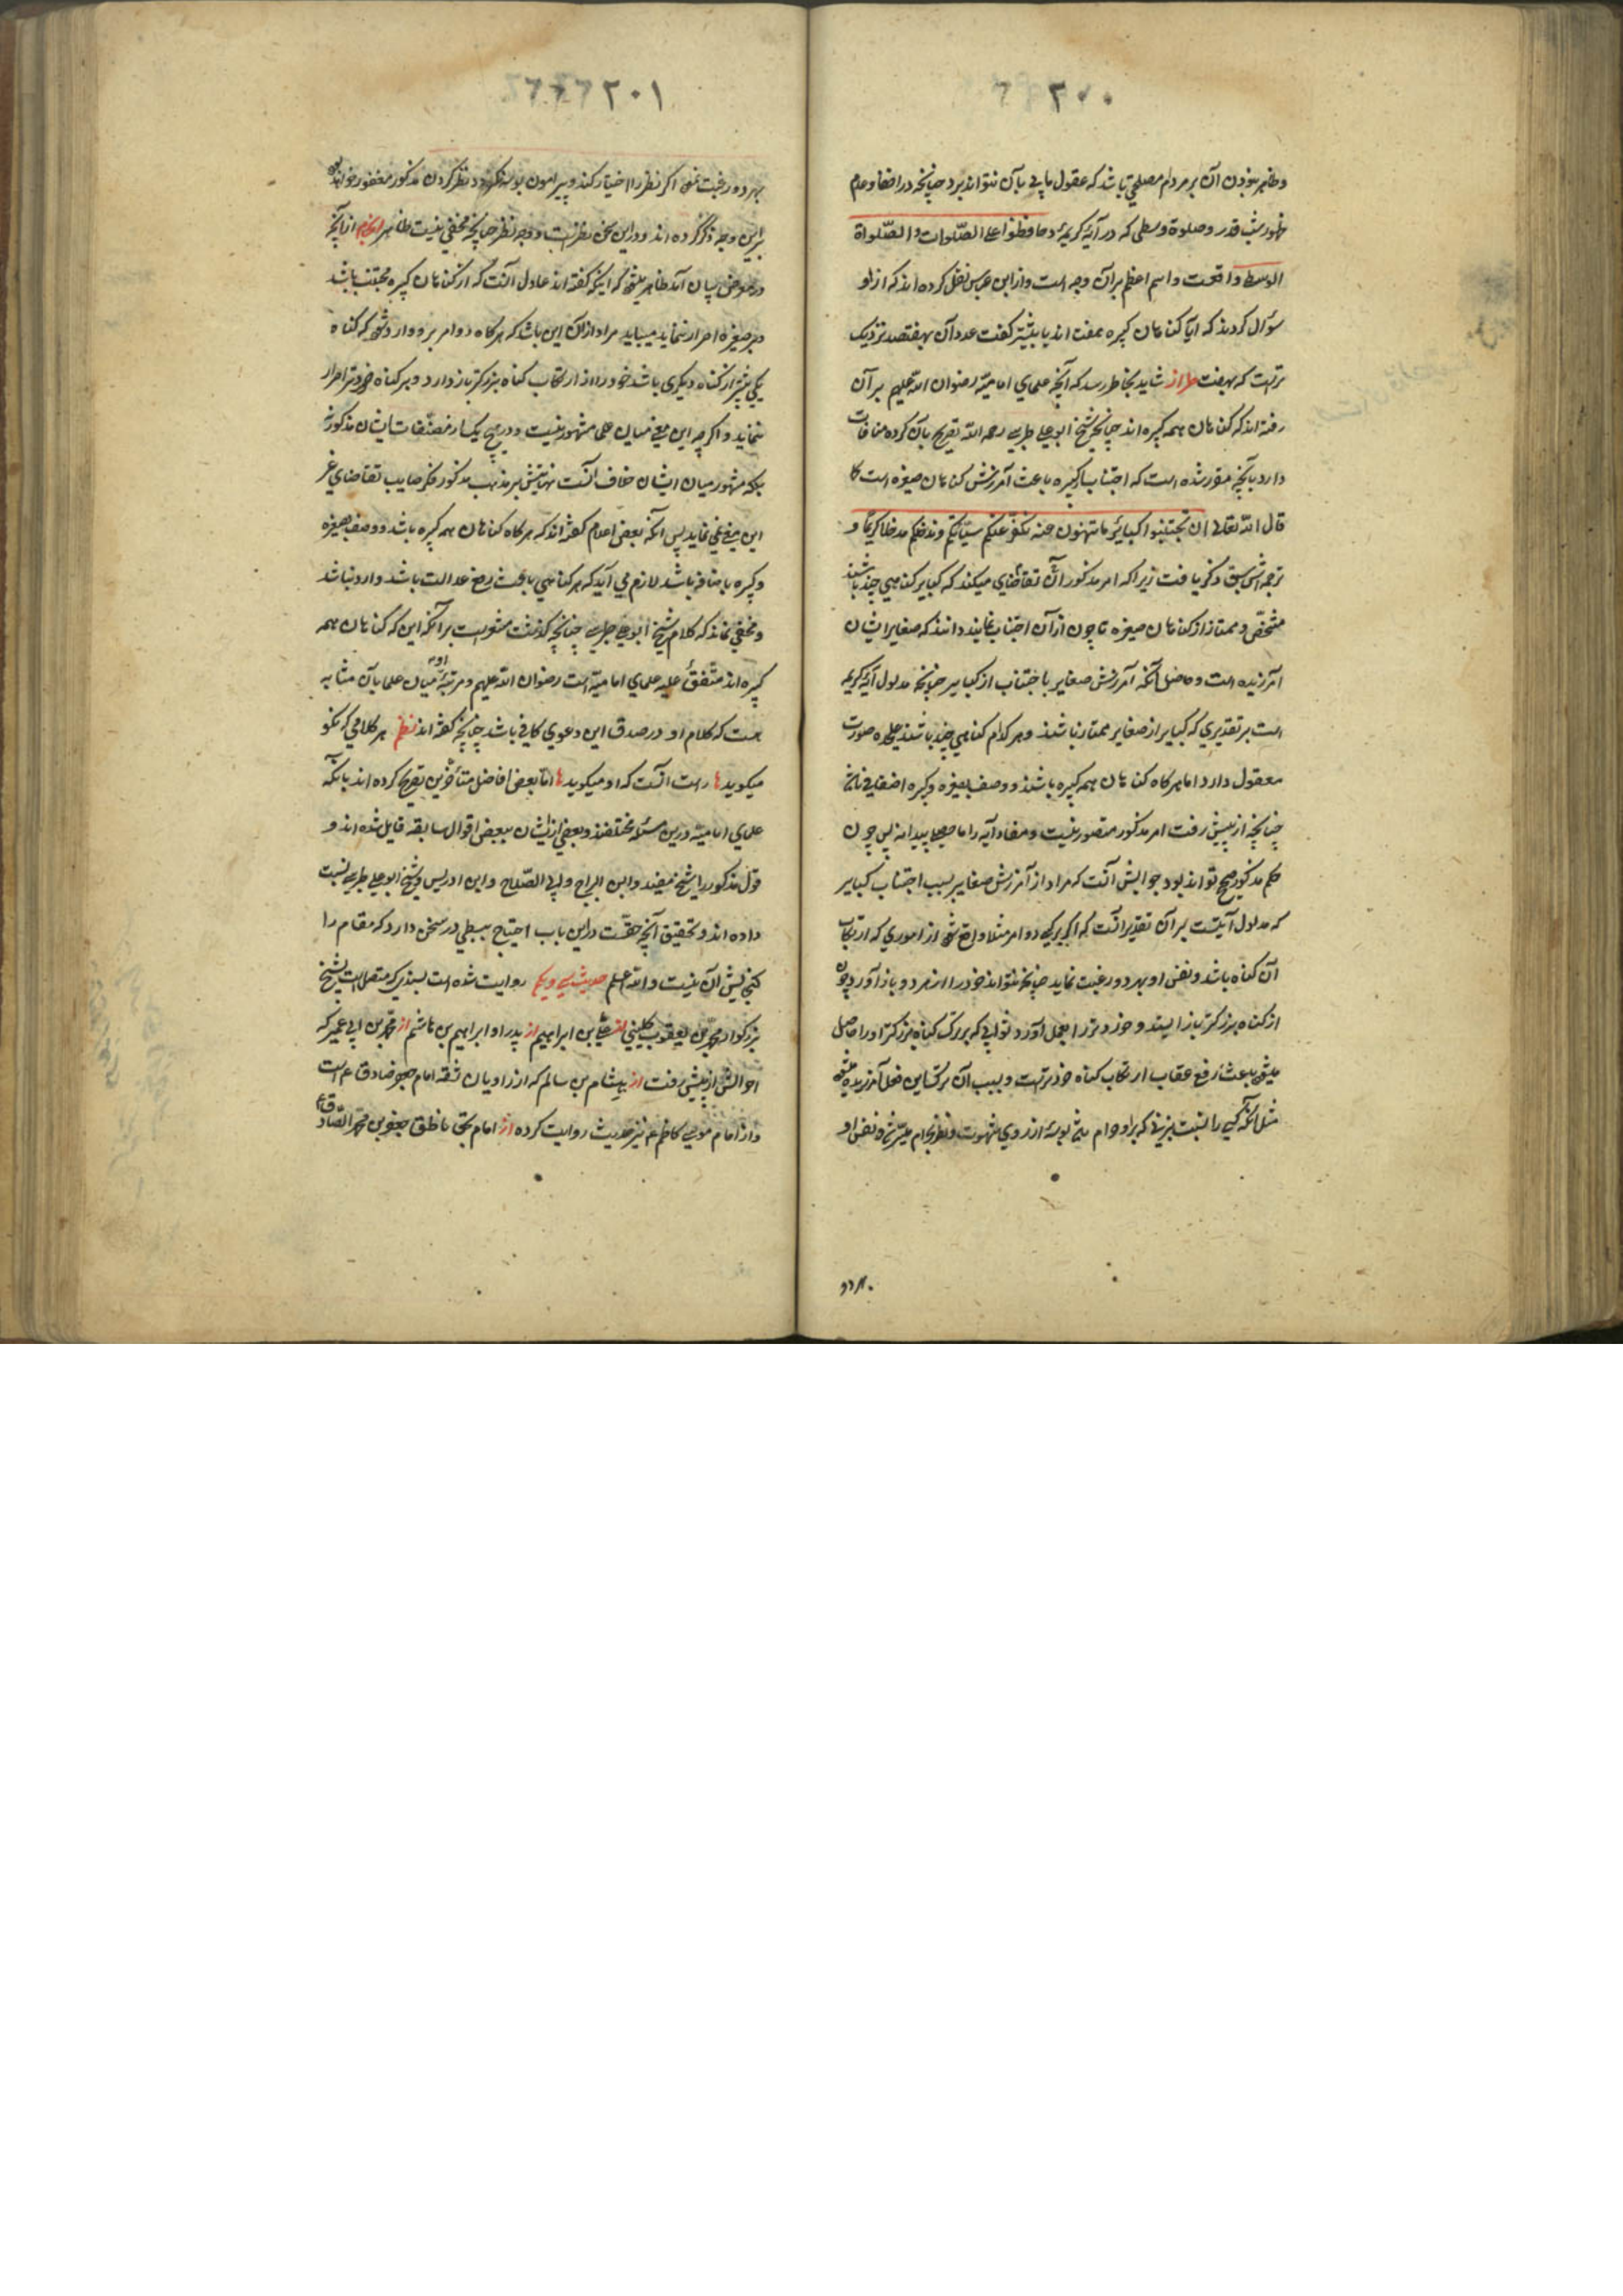 ۲۰۰
وظاهر نبودن آن بر مردم مصلحتی باشد که عقول ما پی بآن نتواند برد چنانچه در اخفا وعدم
ظهور شب قدر وصلوة وسطی که در آیهٔ کریمهٔ وحافظوا علی الصّلوات والصّلواة
الوسطی واقعست واسم اعظم برآن وجه است واز ابن عباس نقل کرده اند که ازاو
سؤال کردند که آیا کناهان کبیره هفت اند یا بیشتر کفت عدد آن بهفتصد نزدیک
ترست که بهفت طراز شاید بخاطر رسد که آنچه علمای امامیّه رضوان الله علیهم برآن
رفته اند که کناهان همه کبیره اند چنانچه شیخ ابوعلی طبرسی رحمه الله تصریح بآن کرده منافات
دارد بآنچه مقرر شده است که اجتناب از کبیره باعث آمرزش کناهان صغیره است کما
قال الله تعالی ان تجتنبوا کبایر ما تنهون عنه نکفّر عنکم سیّئاتکم وندخلکم مدخلا کریمًا و
ترجمه اش سبق ذکر یافت زیرا که امر مذکور آن تقاضای میکند که کبایر کناهی چند باشند
مشخّص وممتاز از کناهان صغیره تا چون از آن اجتناب نمایند دانند که صغایر ایشان
آمرزیده است وحاصل آنکه آمرزش صغایر باجتناب از کبایر چنانچه مدلول آیهٔ کریمه
است بر تقدیری که کبایر از صغایر ممتاز باشند وهر کدام کناهی چند باشند علیحده صورت
معقول دارد اما هرکاه کناهان همه کبیره باشند ووصف بصغیره وکبیره اضافی باشد
چنانچه از پیش رفت امر مذکور متصور نیست ومفاد آیه را ما صحیح پیدا نه پس چون
حکم مذکور صحیح تواند بود جوابش آنست که مراد از آمرزش صغایر بسبب اجتناب کبایر
که مدلول آیتست برآن تقدیر آنست که اکر بر یکی دو امر مثلا واقع شود از اموری که ارتکاب
آن کناه باشد ونفس او بهر دو رغبت نماید چنانچه نتواند خود را از هر دو باز آورد چون
از کناه بزرکتر باز ایستد وخورد تر را بعمل آورد ثوابی که بر ترک کناه بزرکتر او را حاصل
میشود باعث رفع عقاب ارتکاب کناه خورد ترست وبسبب آن ترکست این فعل آمرزیده میشود
مثل آنکه کسی را نسبت بزنی که بر او حرام باشد بوسهٔ از روی شهوت ونظر بحرام میسّر شود ونفس او
بهر دو
۲۰۱
بهر دو رغبت نمود اکر نظر را اختیار کند وپیرامون بوسه نکردد نظر کردن مذکور مغفور خواهد بود
براین وجه ذکر کرده اند ودراین سخن نظرست ووجه نظر چنانچه مخفی نیست ظاهر انجام از آنچه
در معرض بیان آمد ظاهر میشود که اینکه کفته اند عادل آنست که از کناهان کبیره مجتنب باشد
وبر صغیره اصرار ننماید میباید مراد ازآن این باشد که هرکاه دو امر بر او وارد شود که کناه
یکی بیشتر از کناه دیکری باشد خود را از ارتکاب کناه بزرکتر باز دارد وبر کناه خورد تر اصرار
ننماید واکرچه این معنی میان علما مشهور نیست ودرهیچ یک از مصنّفات ایشان مذکور نه
بلکه مشهور میان ایشان خلاف آنست نهایتش بر مذهب مذکور فکر صایب تقاضای غیر
این معنی نمی نماید پس آنکه بعضی اعلام کفته اند که هرکاه کناهان همه کبیره باشد ووصف بصغیره
وکبیره باضافه باشد لازم می آید که هر کناهی باعث رفع عدالت باشد وارد نباشد
ومخفی نماند که کلام شیخ ابوعلی طبرسی چنانچه کذشت مشعرست برآنکه این که کناهان همه
کبیره اند متّفقٌ علیه علمای امامیّه است رضوان الله علیهم ومرتبهٔ او میان علما بآن مثابه
هست که کلام او در صدق این دعوی کافی باشد چنانچه کفته اند نظم هر کلامی که نکو
میکوید راست آنست که او میکوید امّا بعضی افاضل متأخّرین تصریح کرده اند بآنکه
علمای امامیّه درین مسئله مختلفند وبعضی از ایشان ببعضی اقوال سابقه قایل شده اند و
قول مذکور را بشیخ مفید وابن البراج وابی الصّلاح وابن ادریس وشیخ ابوعلی طبرسی نسبت
داده اند وتحقیق آنچه حقّست دراین باب احتیاج ببسطی در سخن دارد که مقام را
کنجایش آن نیست والله اعلم حدیث سی ویکم روایت شده است بسندی که متصل است بشیخ
بزرکوار محمّد بن یعقوب کلینی از علی بن ابراهیم از پدر او ابراهیم بن هاشم از محمّد بن ابی عمیر که
احوالش از پیش رفت از هشام بن سالم که از راویان ثقهٔ امام جعفر صادق ع است
واز امام موسی کاظم ع نیز حدیث روایت کرده از امام بحق ناطق جعفر بن محمّد الصّادق ع